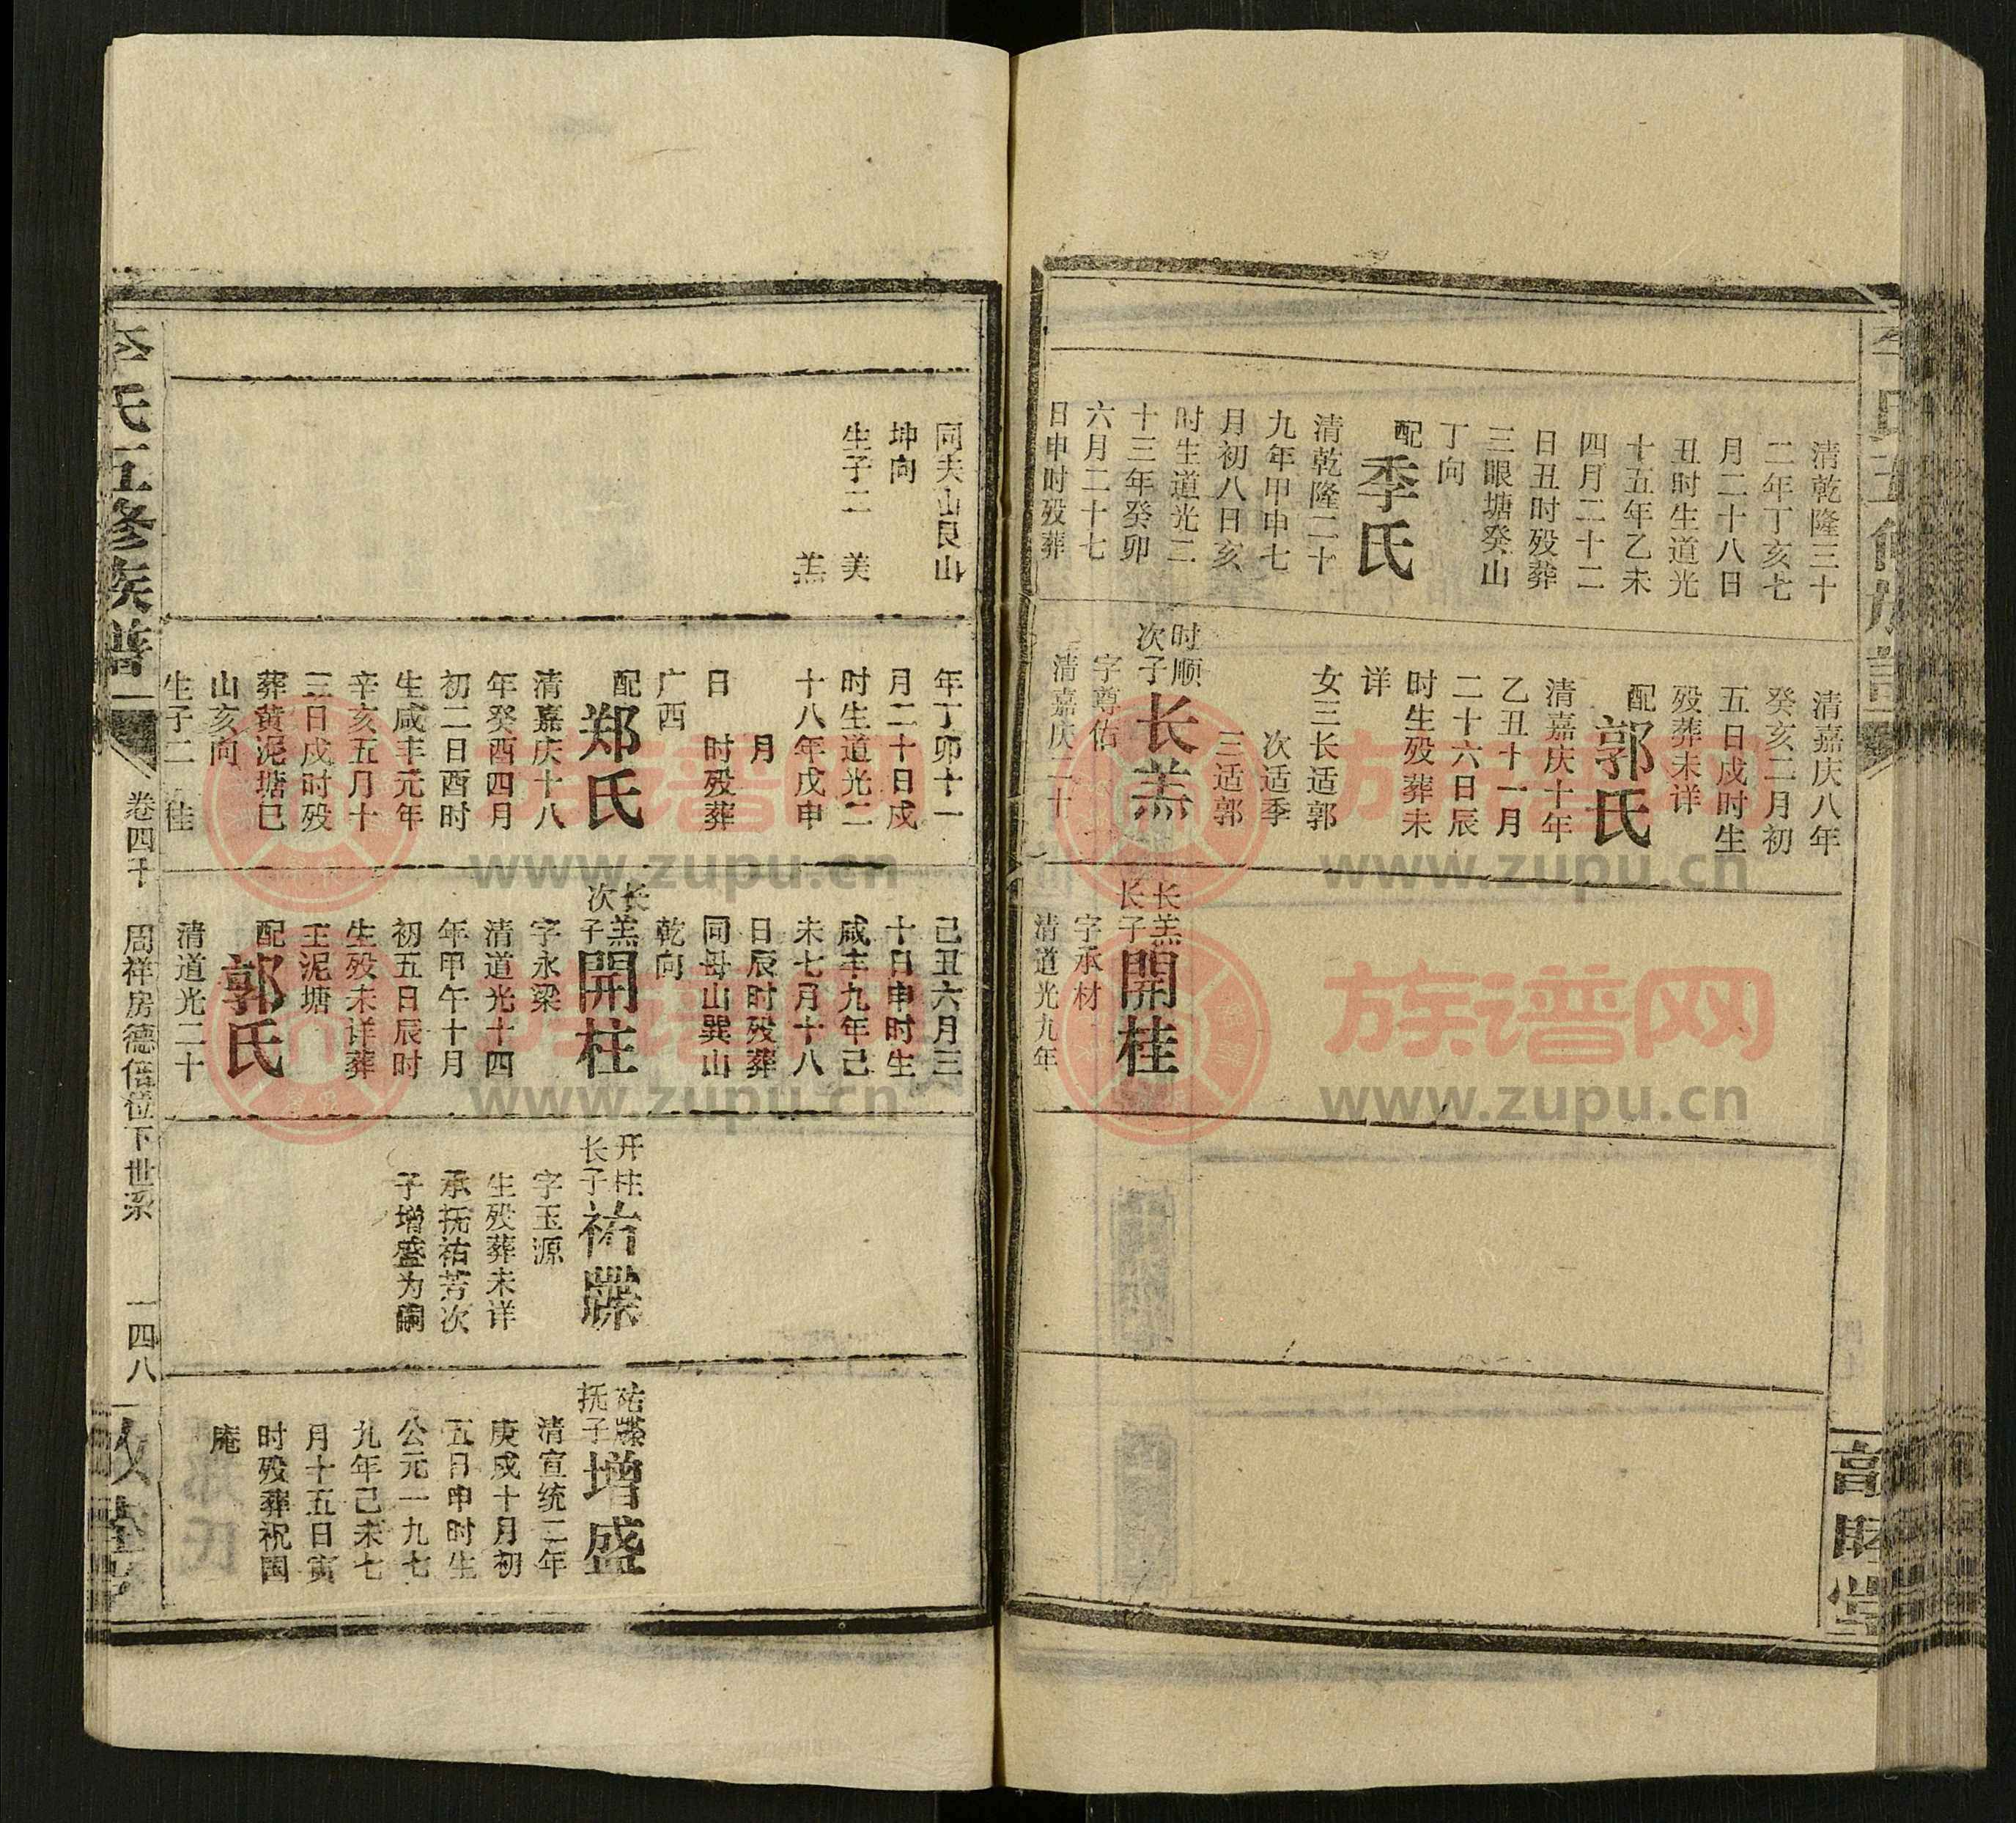 清乾隆三十
二年丁亥七
月二十八日
丑时生道光
十五年乙未
四月二十二
日丑时殁葬
三眼塘癸山
丁向
配季氏
清乾隆二十
九年甲申七
月初八日亥
时生道光二
十三年癸卯
六月二十七
日申时殁葬
清嘉庆八年
癸亥二月初
五日戌时生
殁葬未详
配郭氏
清嘉庆十年
乙丑十一月
二十六日辰
时生殁葬未
详
女三长适郭
次适季
三适郭
时顺
次子长羔
字尊佑
清嘉庆二十
长羔
长子開桂
字承材
清道光九年
同夫山艮山
坤向
生子二 美
羔
年丁卯十一
月二十日戌
时生道光二
十八年戊申
月
日 时殁葬
广西
配郑氏
清嘉庆十八
年癸酉四月
初二日酉时
生咸丰元年
辛亥五月十
三日戌时殁
葬黄泥塘巳
山亥向
生子二 桂
己丑六月三
十日申时生
咸丰九年己
未七月十八
日辰时殁葬
同母山巽山
乾向
长羔
次子開柱
字永梁
清道光十四
年甲午十月
初五日辰时
生殁未详葬
王泥塘
配郭氏
清道光二十
开柱
长子祐
字玉源
生殁葬未详
承抚祐芳次
子增盛为嗣
抚子增盛
清宣统二年
庚戌十月初
五日申时生
公元一九七
九年己未七
月十五日寅
时殁葬祝国
庵
李氏五修族谱
卷四千
周祥房德倍位下世系
一四八
族谱网
www.zupu.cn
族谱网
www.zupu.cn
族谱网
www.zupu.cn
族谱网
www.zupu.cn